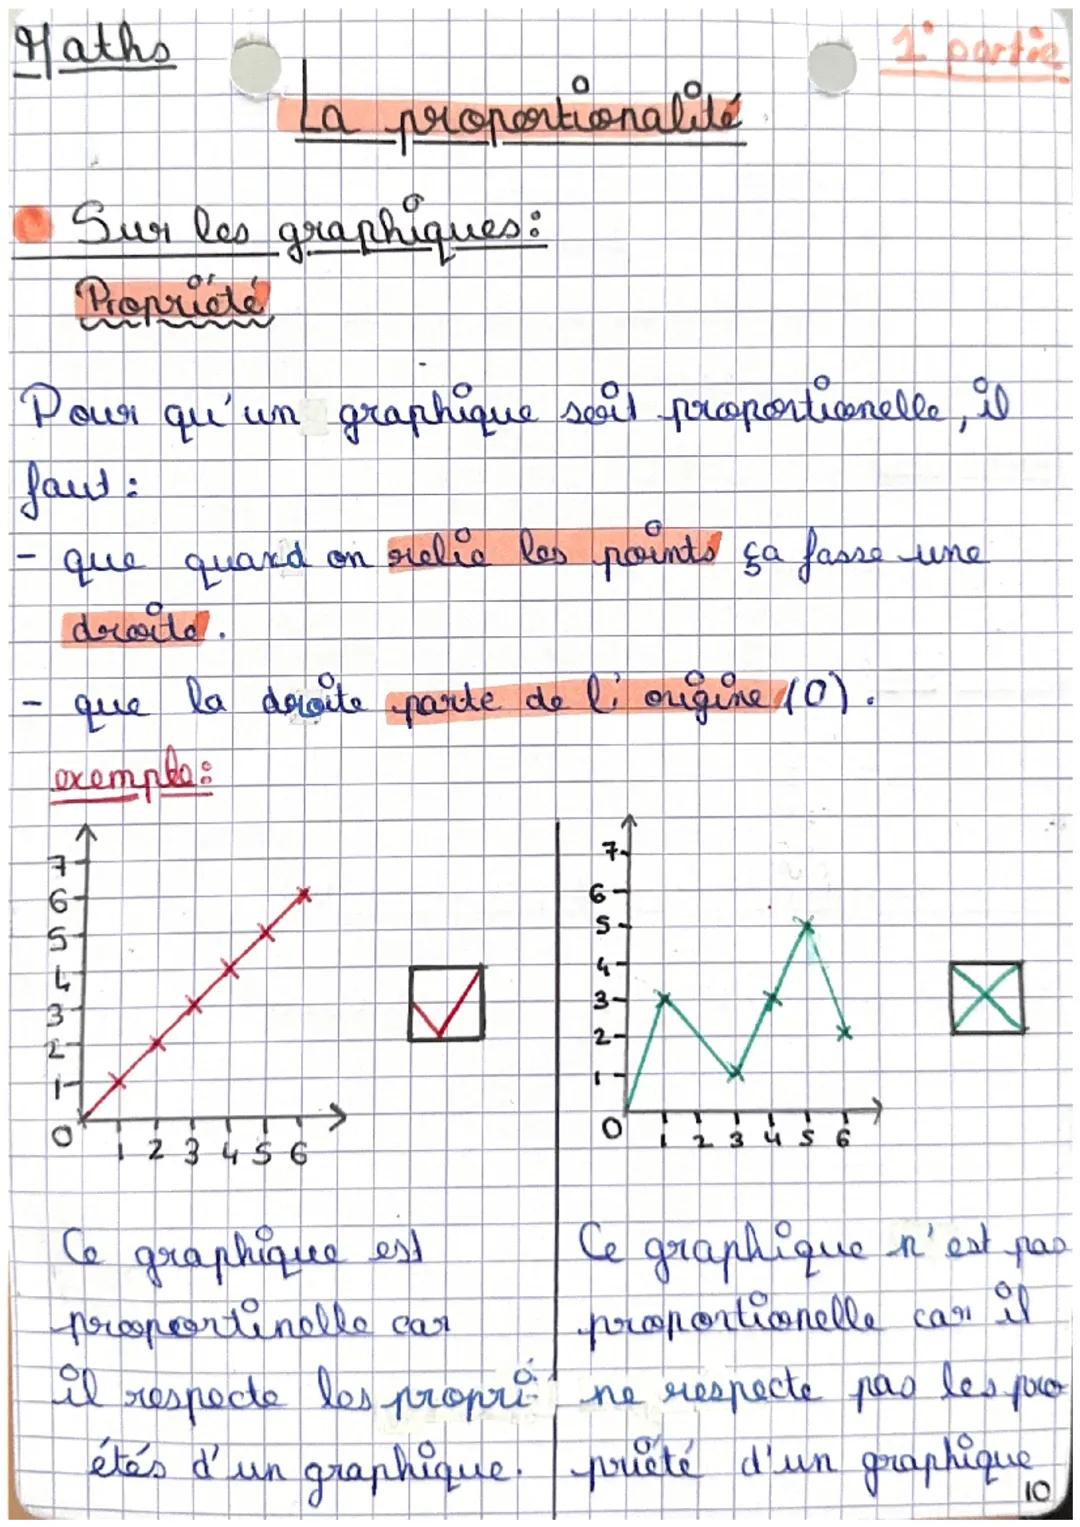 Maths
1° partie
La proportionalité
Sur les graphiques:
Propriété
Pour qu'un graphique soit proportionelle, il
faut :
- que quand on relie les points ça fasse une
droite.
- que la droite parte de l'origine (0).
exemple:
7
6
5
4
3
2
1
0
1 2 3 4 5 6
7
6
5
4
3
2
1
0
1 2 3 4 5 6
Ce graphique est
proportinelle car
il respecte les propri-
étés d'un graphique.
Ce graphique n'est pas
proportionelle car il
ne respecte pas les pro
priété d'un graphique
10